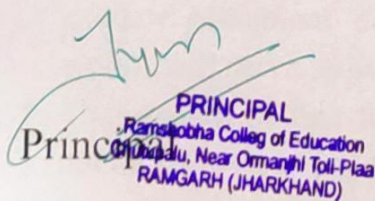 PRINCIPAL
Ramshobha Colleg of Education
Principal
Near Ormanjhi Toll-Plaa
RAMGARH (JHARKHAND)